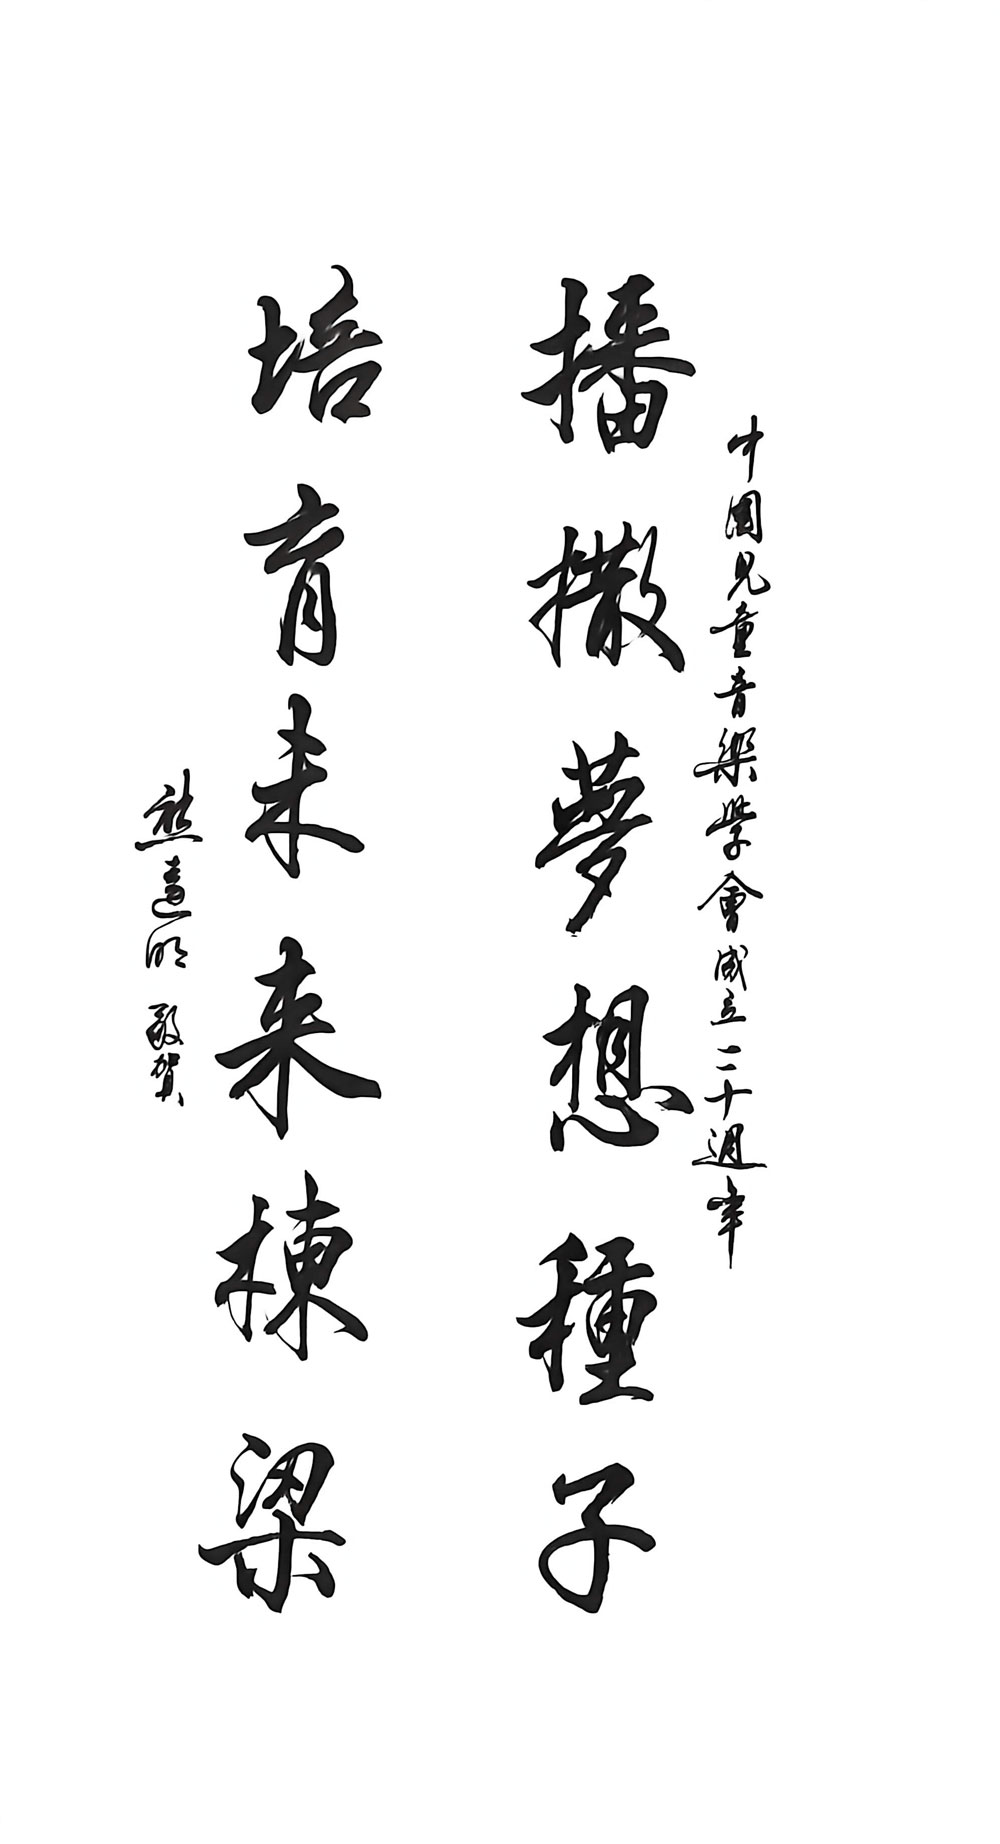 中國兒童音樂學會成立二十週年
播撒夢想種子
培育未来棟梁
熊遠明 敬賀